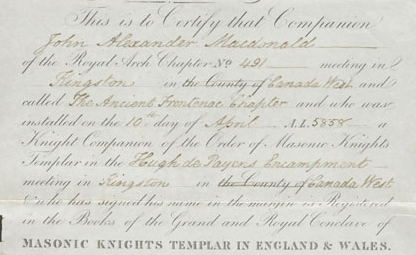 This is to Certify that Companion
John Alexander Macdonald
of the Royal Arch Chapter No. 491 meeting in
Kingston in the County of Canada West and
called The Ancient Frontenac Chapter and who was
installed on the 10th day of April A.L. 5858 a
Knight Companion of the Order of Masonic Knights
Templar in the Hugh de Payens Encampment
meeting in Kingston in the County of Canada West
& who has signed his name in the margin is Registered
in the Books of the Grand and Royal Conclave of
MASONIC KNIGHTS TEMPLAR IN ENGLAND & WALES.